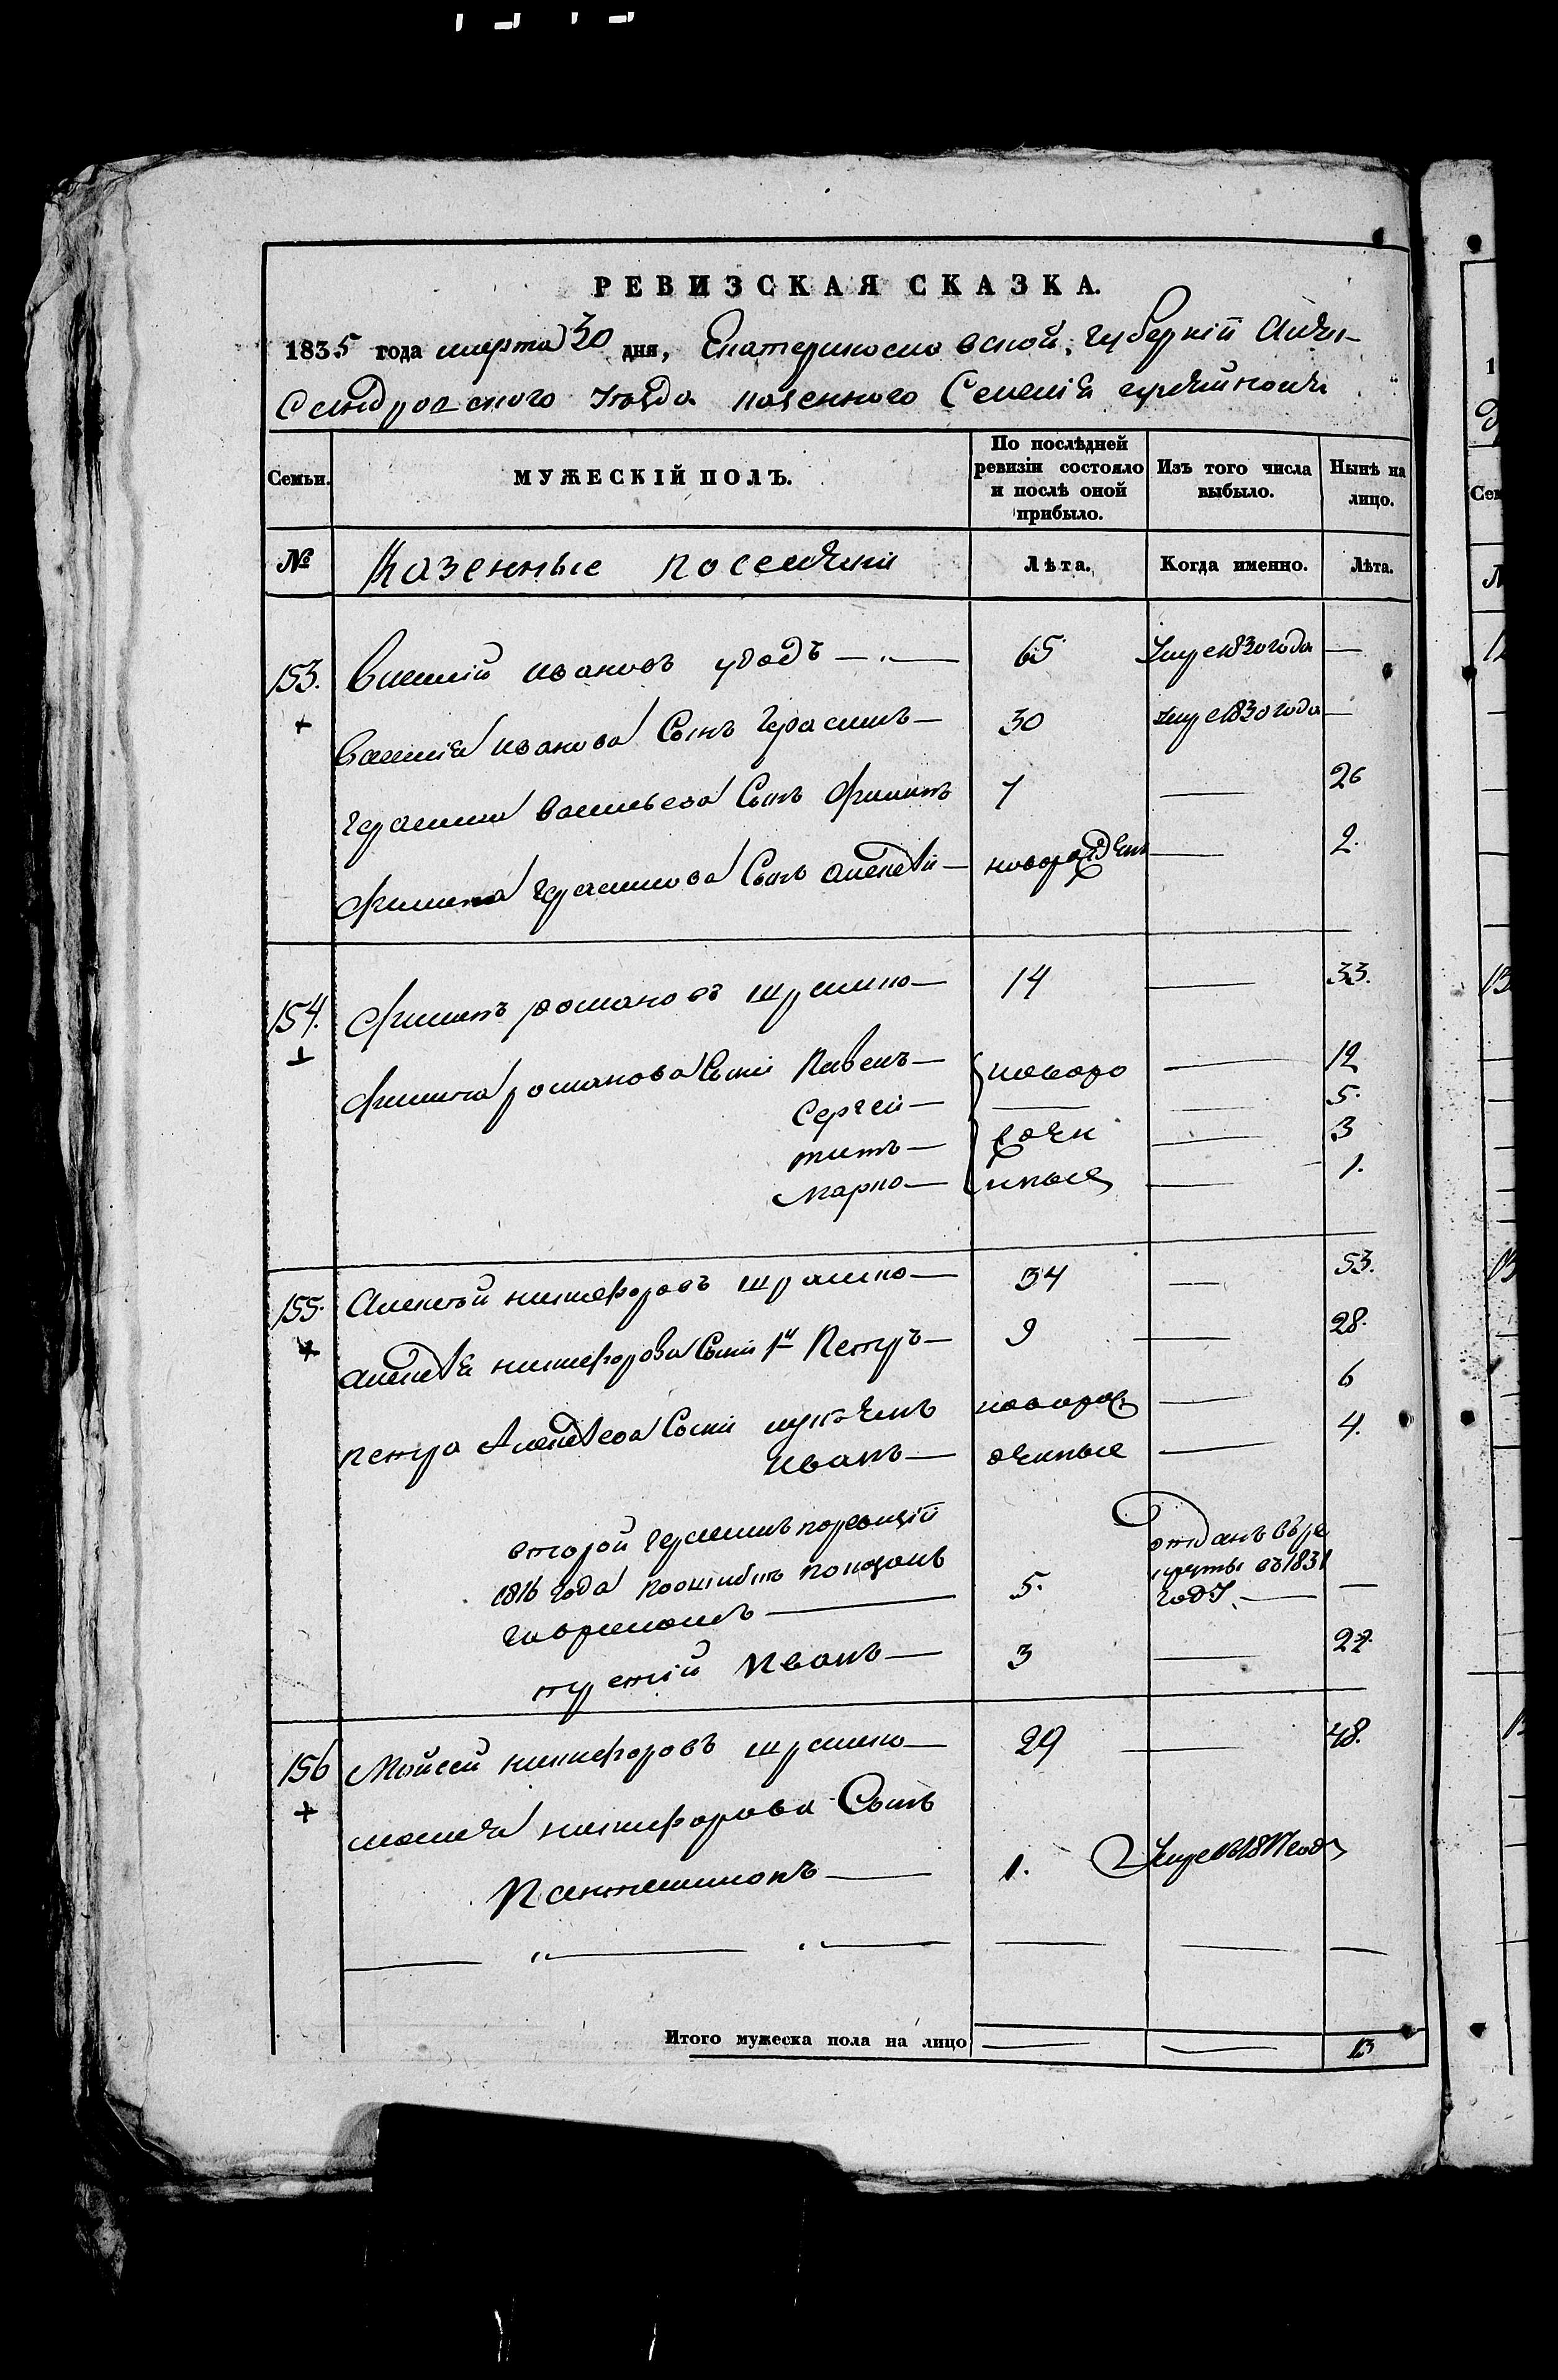 РЕВИЗСКАЯ СКАЗКА.
1835 года марта 30 дня, Екатеринославской, губернiи Алек-
сандровскаго уѣзда казеннаго Селенiя
Семьи.
МУЖЕСКIЙ ПОЛЪ.
По послѣдней ревизiи состояло и послѣ оной прибыло.
Изъ того числа выбыло.
Нынѣ на лицо.
№
Казенные поселяни
Лѣта.
Когда именно.
Лѣта.
153. Василiй Ивановъ — 65 Умре 1830 года —
Василiя Иванова Сынъ Герасимъ — 30 умре 1830 года —
Герасима Васильева Сынъ Филипъ 7 — 26
Филипа Герасимова Сынъ Алексѣй — новорожденъ — 2.
154. Филипъ Романовъ — 14 — 33.
Филипа Романова Сыни Павелъ — новоро — 12
Сергей — — 5.
титъ — жден — 3
Марко — ные — 1.
155. Алексѣй Никифоровъ — 34 — 53.
Алексѣя Никифорова Сыни 1й Петръ — 9 — 28.
Петра Алексѣева Сыни новорож — 6
Иванъ — денные — 4.
второй Герасимъ поревизiи
1816 года поошибкѣ показанъ
— 5. отданъ въ рекруты въ 1831 году. —
третiй Иванъ — 3 — 22.
156 Мойсей Никифоровъ — 29 — 48.
Моисея Никифорова Сынъ
Пантелимонъ — 1. Умре въ 1817 году
Итого мужеска пола на лицо — — 13